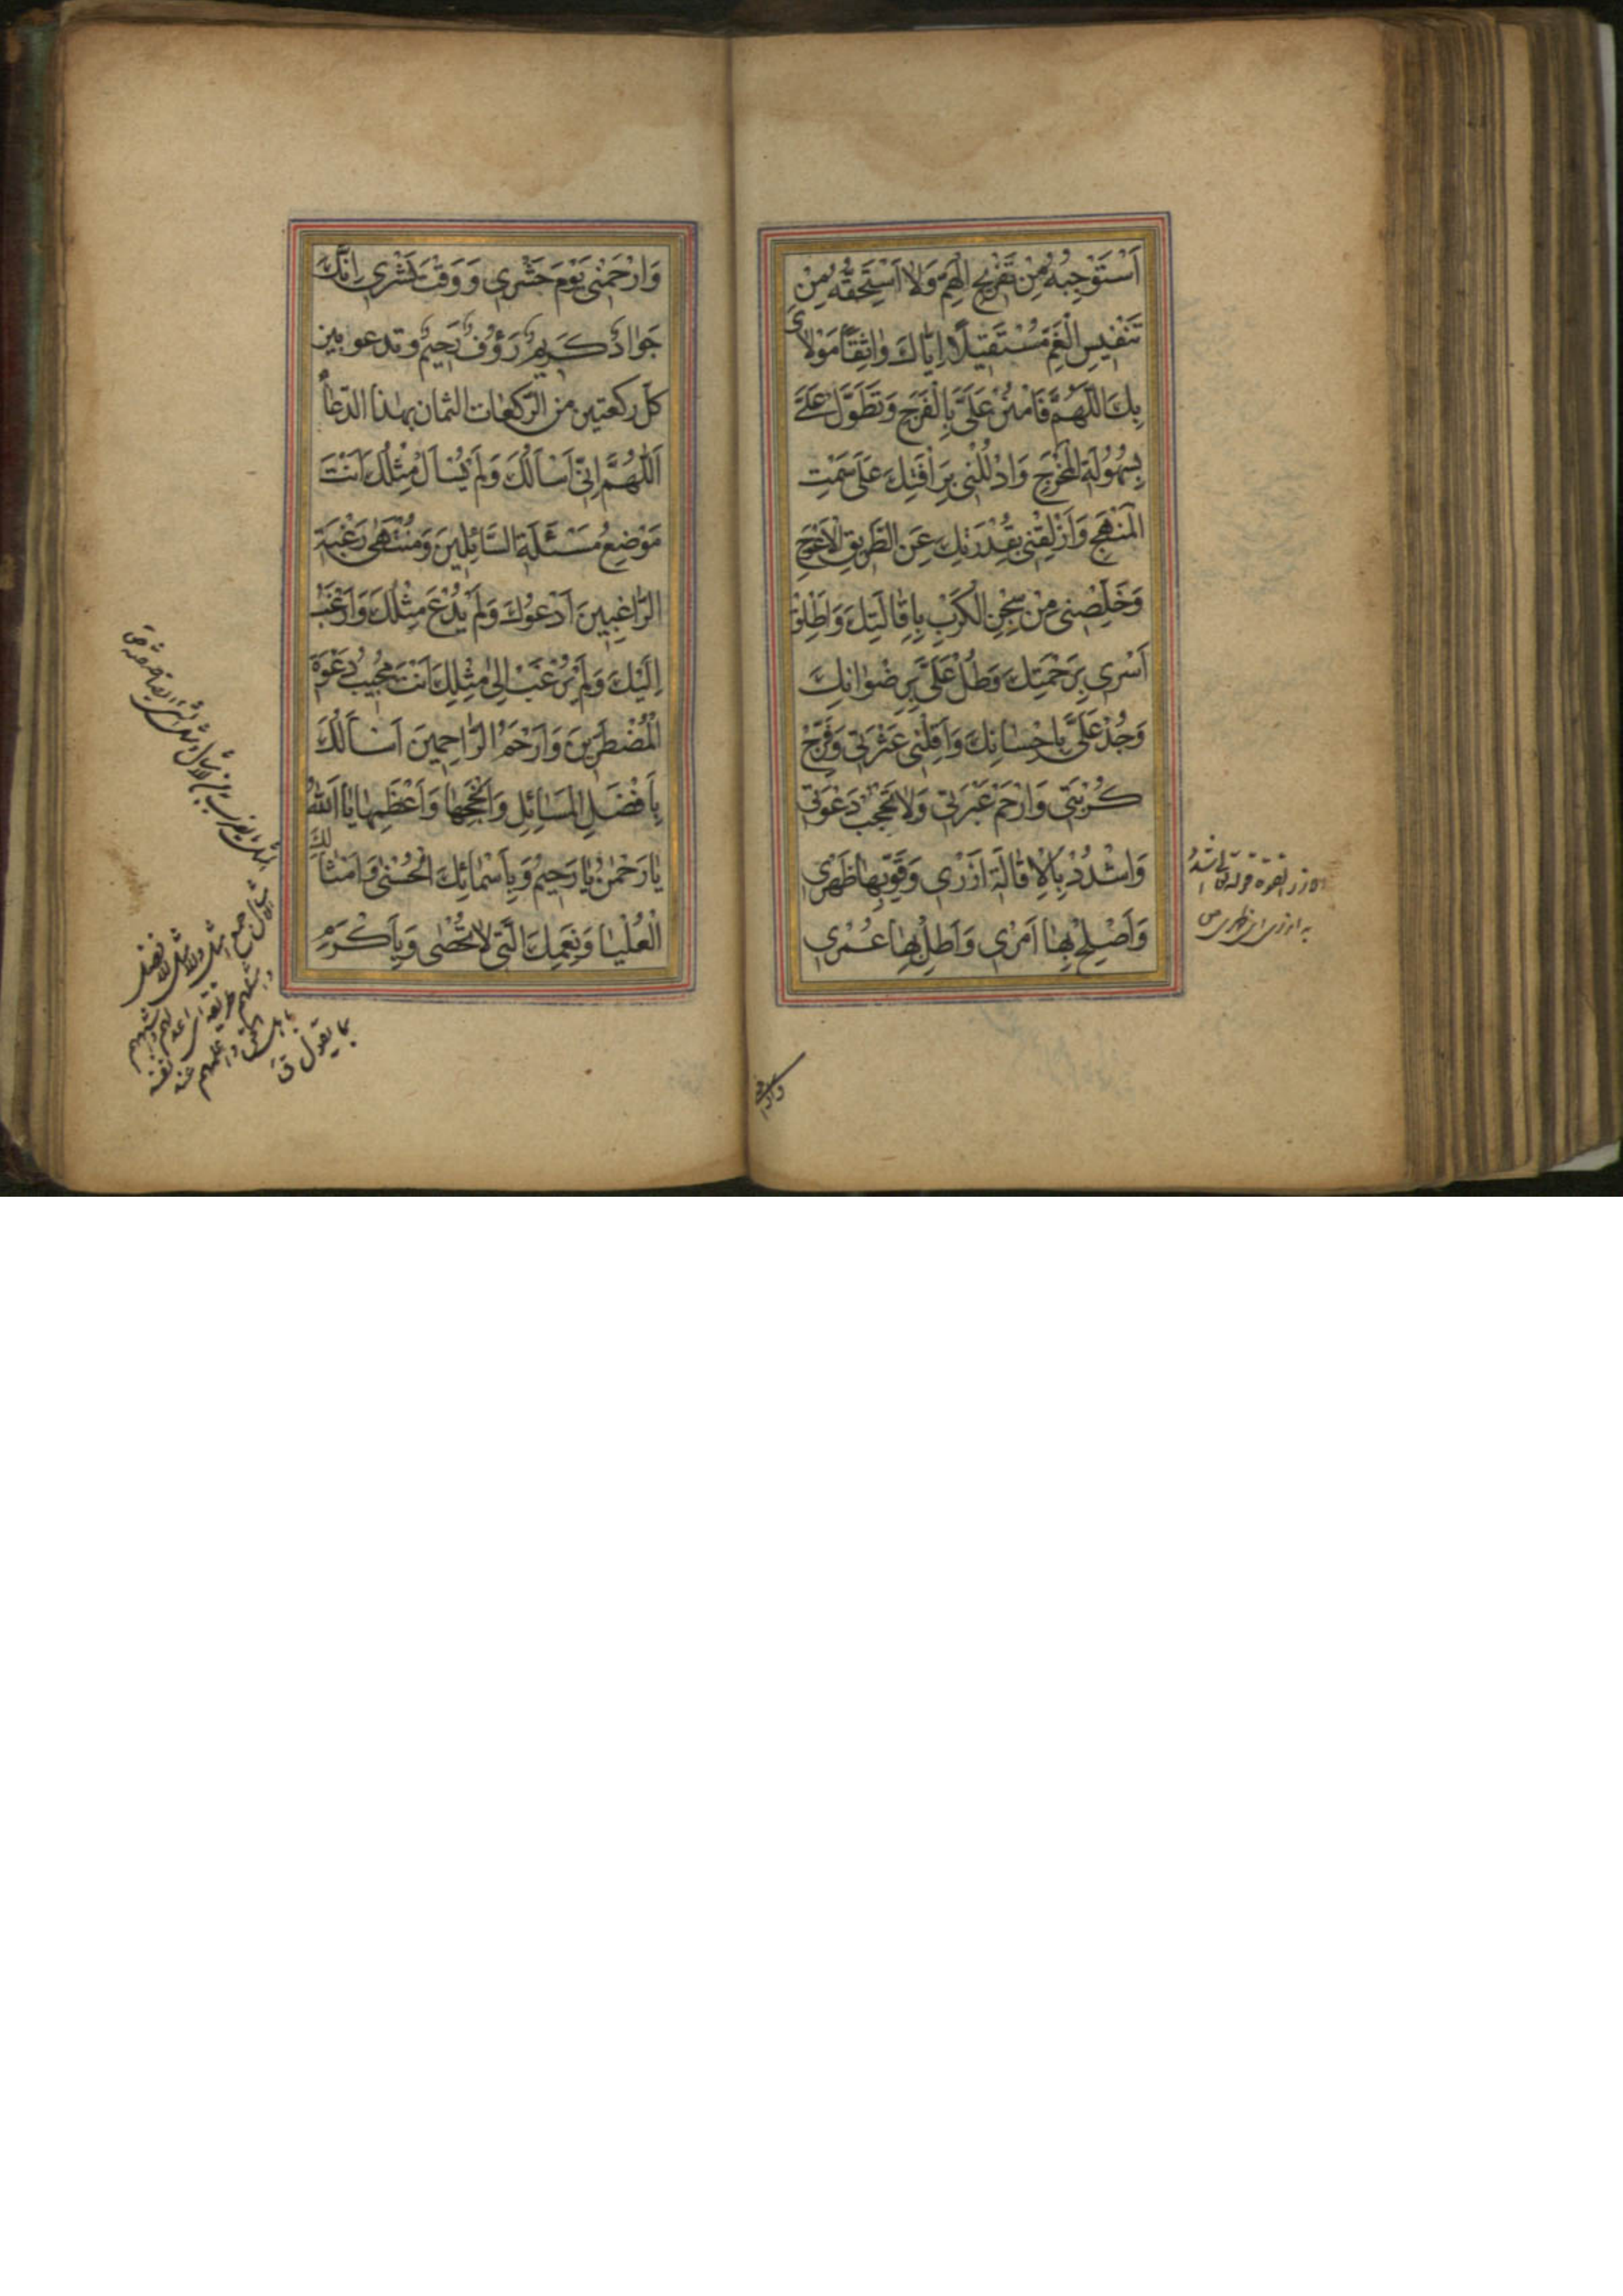 اَسْتَوْجِبُهُ مِنْ تَفْرِيجِ الْهَمِّ وَلاٰ اَسْتَحِقُّهُ مِنْ
تَنْفِيسِ الْغَمِّ مُسْتَقِيلاً اِيّٰاكَ وٰاثِقاً مَوْلاٰيَ
بِكَ اَللّٰهُمَّ فَامْنُنْ عَلَيَّ بِالْفَرَجِ وَتَطَوَّلْ عَلَيَّ
بِسُهُولَةِ الْمَخْرَجِ وَادْلُلْنِي بِرَاْفَتِكَ عَلىٰ سَمْتِ
الْمَنْهَجِ وَاَزْلِقْنِي بِقُدْرَتِكَ عَنِ الطَّرِيقِ الْاَعْوَجِ
وَخَلِّصْنِي مِنْ سِجْنِ الْكَرْبِ بِاِقٰالَتِكَ وَاَطْلِقْ
اَسْرِي بِرَحْمَتِكَ وَطُلْ عَلَيَّ بِرِضْوٰانِكَ
وَجُدْ عَلَيَّ بِاِحْسٰانِكَ وَاَقِلْنِي عَثْرَتِي وَفَرِّجْ
كُرْبَتِي وَارْحَمْ عَبْرَتِي وَلاٰ تَحْجُبْ دَعْوَتِي
وَاشْدُدْ بِالْاِقٰالَةِ اَزْرِي وَقَوِّ بِهٰا ظَهْرِي
وَاَصْلِحْ بِهٰا اَمْرِي وَاَطِلْ بِهٰا عُمْرِي
وارحمنى
وَارْحَمْنِي يَوْمَ حَشْرِي وَوَقْتَ نَشْرِي اِنَّكَ
جَوٰادٌ كَرِيمٌ رَؤُفٌ رَحِيمٌ وتدعو بين
كل ركعتين من الركعات الثمان بهذا الدعاء
اَللّٰهُمَّ اِنِّي اَسْاَلُكَ وَلَمْ يُسْاَلْ مِثْلُكَ اَنْتَ
مَوْضِعُ مَسْئَلَةِ السّٰائِلِينَ وَمُنْتَهىٰ رَغْبَةِ
الرّٰاغِبِينَ اَدْعُوكَ وَلَمْ يُدْعَ مِثْلُكَ وَاَرْغَبُ
اِلَيْكَ وَلَمْ يُرْغَبْ اِلىٰ مِثْلِكَ اَنْتَ مُجِيبُ دَعْوَةِ
الْمُضْطَرِّينَ وَاَرْحَمُ الرّٰاحِمِينَ اَسْاَلُكَ
بِاَفْضَلِ الْمَسٰائِلِ وَاَنْجَحِهٰا وَاَعْظَمِهٰا يٰا اَللّٰهُ
يٰا رَحْمٰنُ يٰا رَحِيمُ وَبِاَسْمٰائِكَ الْحُسْنىٰ وَاَمْثٰالِكَ
الْعُلْيٰا وَنِعَمِكَ الَّتِي لاٰ تُحْصىٰ وَبِاَكْرَمِ